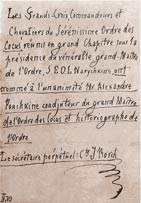 Les Grands-Croix, Commandeurs et
Chevaliers du Sérénissime Ordre des
Cocus, réunis en grand Chapitre sous la
présidence du vénérable grand-Maître
de l'Ordre, S.E.D.L. Narychkine, ont
nommé à l'unanimité Mr. Alexandre
Pouchkine coadjuteur du grand Maître
de l'Ordre des Cocus et historiographe de
l'Ordre.
Le sécrétaire perpétuel: Cte J. Borch